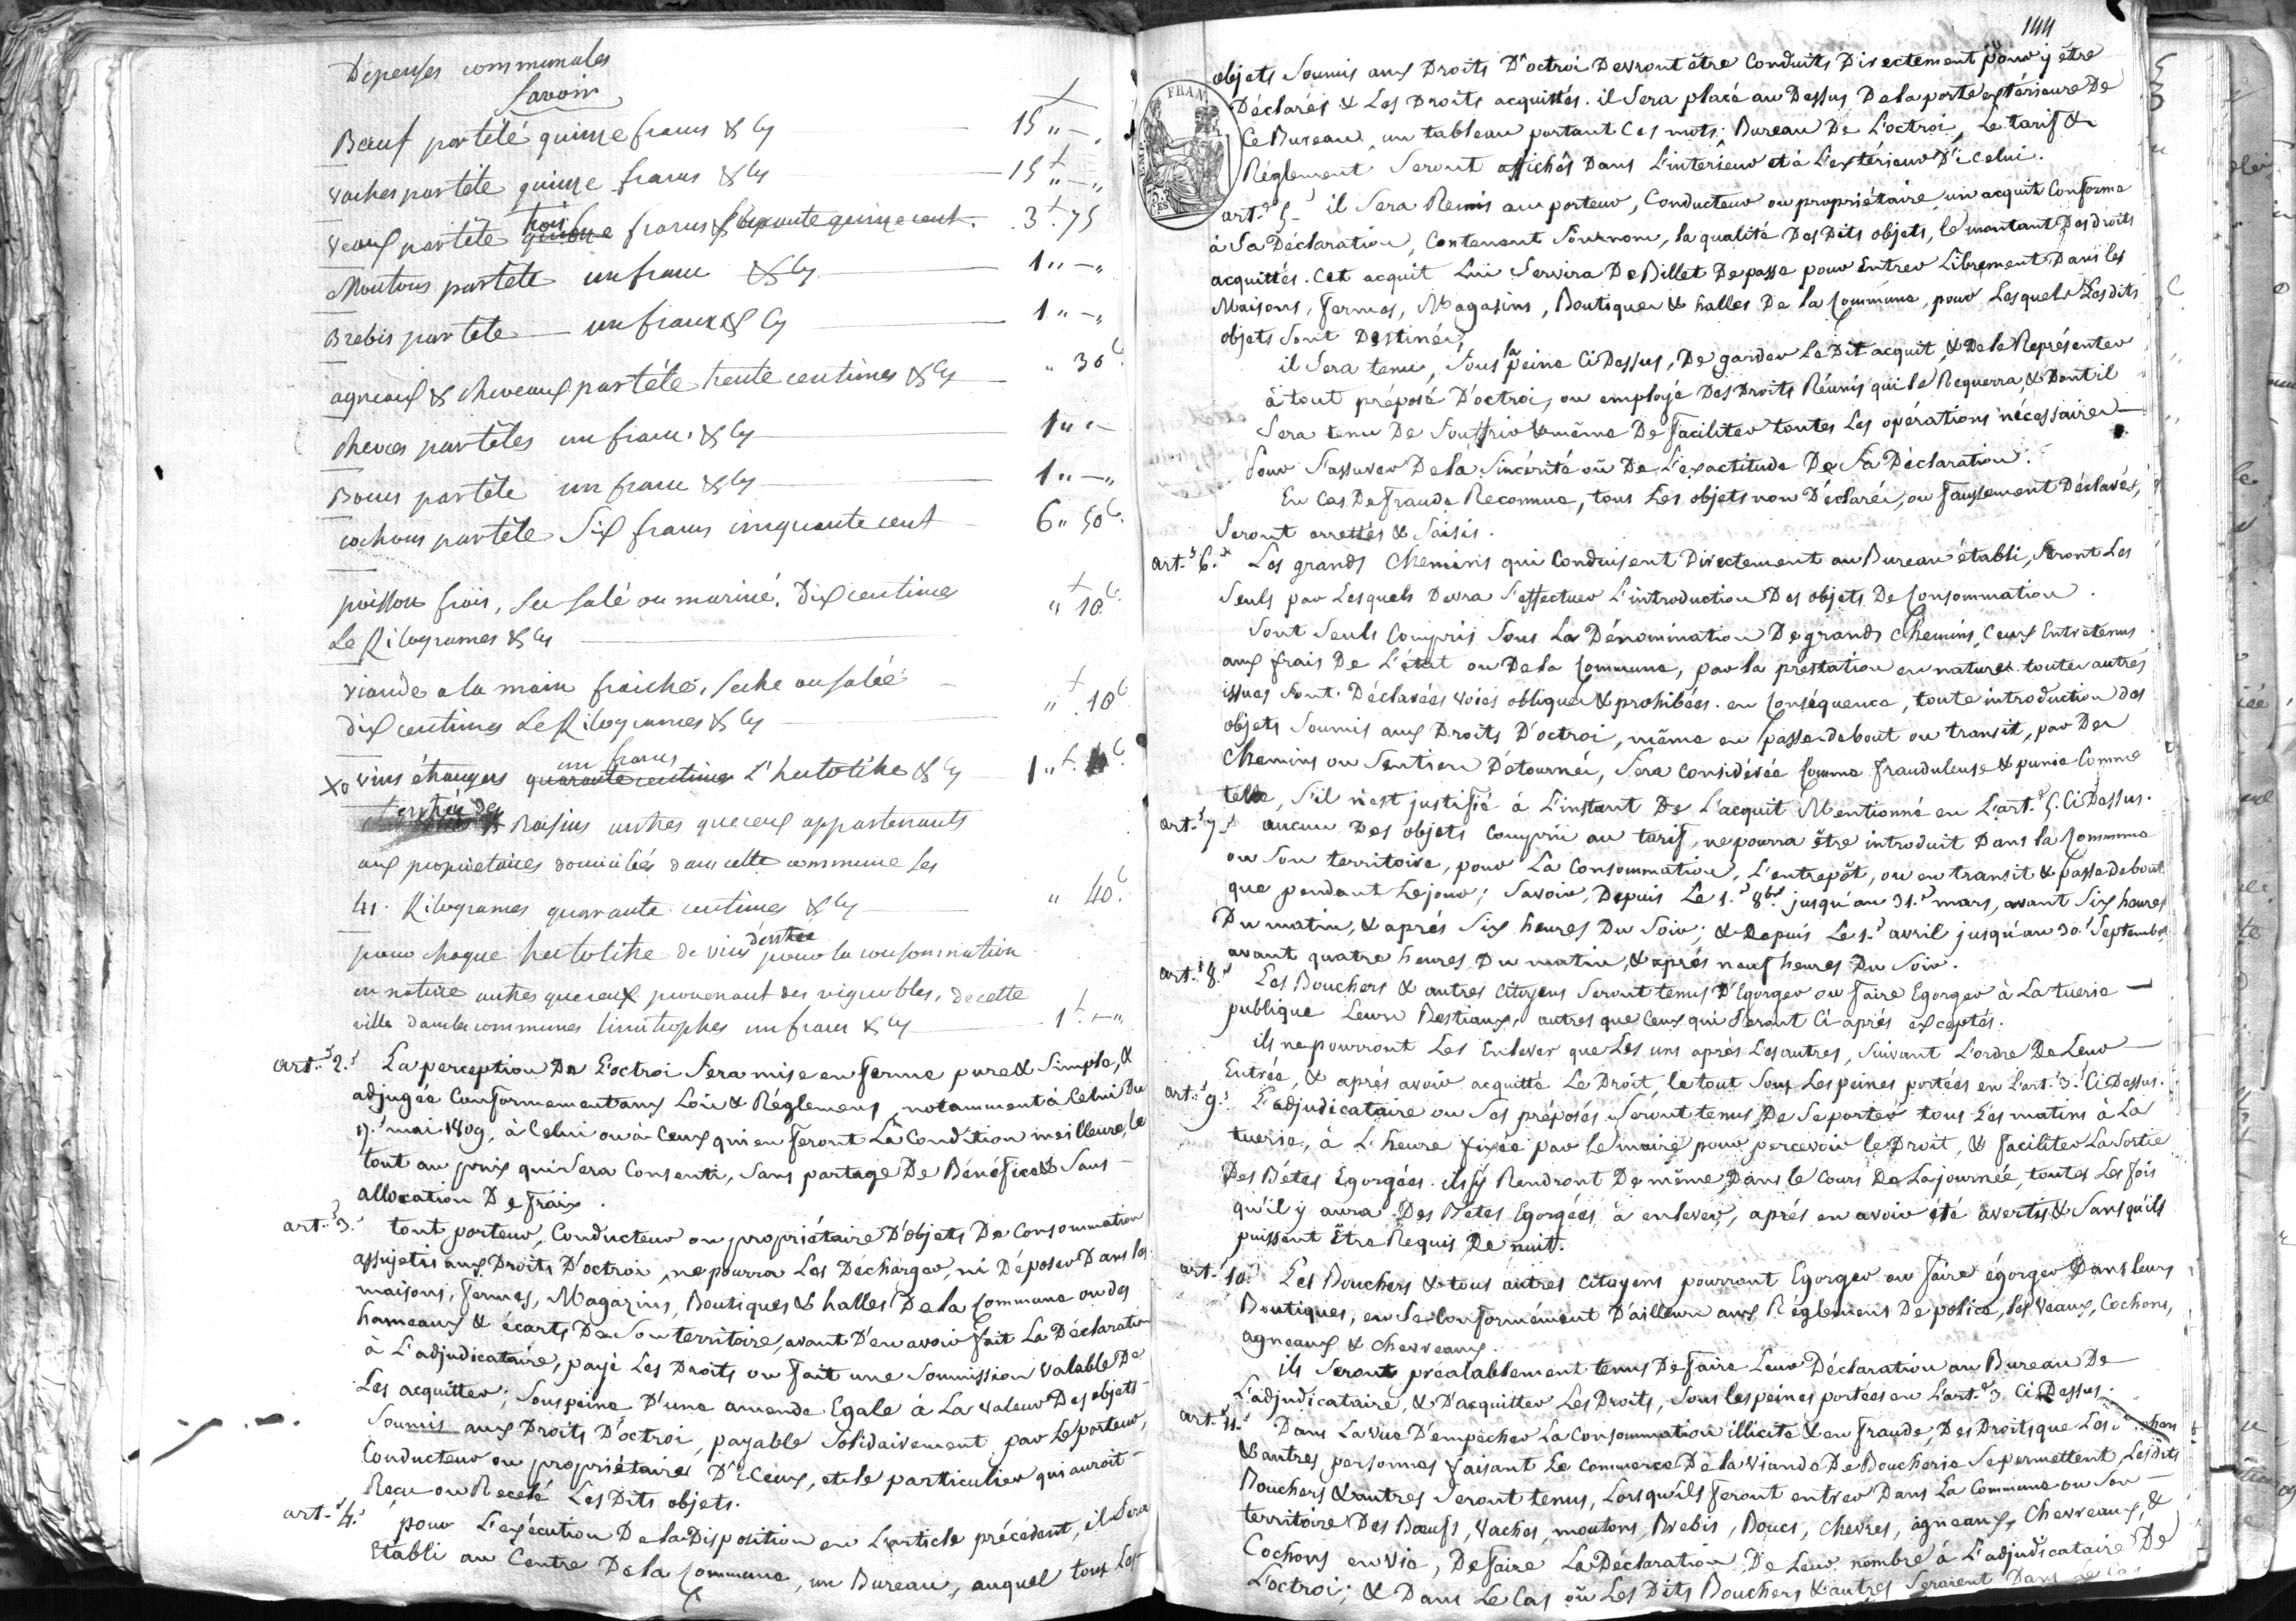 Dépenses communales
Savoir
Bœuf par tété quinze francs &cy 15 "-"
vaches par tete quinze francs &cy 15 "-"
veaux par tete trois francs soixante quinze cent. 3f.75
Moutons par tete un franc &cy 1 "-"
Brebis par tete un franc & cy 1 "-"
agneaux & chevreaux par téte trente centimes &cy " 30c
chevres par tétes un franc. &cy 1 "-"
Boucs par tete un franc &cy 1 "-"
cochons par tete Six francs cinquante cent 6 " 50c.
poisson frais, sec salé ou mariné. Dix centimes " 10c
Le Kilogrames &cy
viande a la main fraiche, seche ou salée
dix centimes Le Kilogrames &cy " 10c
un francs
vins étrangers quarante centimes L'hectolitre &cy 1 "f.
entrée des Raisins autres que ceux appartenants
aux proprietaires domiciliés dans cette commune les
41. Kilogrames quarante centimes &cy " 40c.
d'entrée
pour chaque hectolitre de vins pour la consommation
en nature autres que ceux provenant des vignobles, de cette
ville dans les communes limitrophes un franc &cy 1f. "-"
art. 2. La perception De L'octroi Sera mise en ferme pure & Simple, &
adjugée Conformement aux Lois & Réglemens, notamment à Celui Du
17. mai 1809, à Celui ou à Ceux qui en feront La Condition meilleure, le
tout au prix qui Sera Consenti, Sans partage De Bénéfice & Sans
allocation De fraix.
art. 3. tout porteur, Conducteur ou propriétaire D'objets De Consommation
assujetis aux Droits D'octroi, ne pourra Les Décharger, ni Déposer Dans les
maisons, fermes, Magazins, Boutiques & halles De la Commune ou des
hameaux & écarts De Son territoire, avant D'en avoir fait La Déclaration
à L'adjudicataire, payé Les Droits ou fait une Soumission valable De
Les acquitter; Sous peine D'une amende Egale à La valeur Des objets
Soumis aux Droits D'octroi, payable Solidairement par Le porteur,
Conducteur ou propriétaire D'iCeux, et le particulier qui auroit
Reçu ou Recelé Les Dits objets.
art. 4. pour L'exécution De la Disposition en L'article précédent, il Sera
Etabli au Centre De la Commune, un Bureau, auquel tous Les
144
objets Soumis aux Droits D'octroi Devront être Conduits Directement pour y être
Déclarés & Les Droits acquittés. il Sera placé au Dessus De la porte extérieure De
Ce Bureau, un tableau portant Ces mots: Bureau De L'octroi, Le tarif &
Réglement Seront affichés Dans L'interieur et à L'extérieur D'icelui.
FRAN
EMP.
art. 5. il Sera Remis au porteur, Conducteur ou propriétaire un acquit Conforme
à Sa Déclaration, Contenant Son nom, la qualité Des Dits objets, le montant Des droits
acquittés. Cet acquit Lui Servira De Billet De passe pour Entrer Librement Dans les
Maisons, fermes, Magasins, Boutiques & halles De la Commune, pour Lesquels Les dits
objets Sont Destinés.
il Sera tenu, Sous la peine Ci Dessus, De garder Le Dit acquit, & De le Représenter
à tout préposé D'octroi, ou employé Des Droits Réunis qui le Requerra, & Dont il
Sera tenu De Souffrir & même De faciliter toutes Les opérations nécessaires
Pour S'assurer De la Sincérité ou De L'exactitude De Sa Déclaration.
En Cas De fraude Reconnue, tous Les objets non Déclarés, ou faussement Déclarés,
Seront arrettés & Saisis.
art. 6. Les grands Chemins qui Conduisent Directement au Bureau établi, Seront Les
Seuls par Lesquels Devra S'effectuer L'introduction Des objets De Consommation.
Sont Seuls Compris Sous La Dénomination De grands Chemins, Ceux Entretenus
aux frais De L'état ou De la Commune, par la prestation en nature. toutes autres
issues Sont Déclarées voies obliques & prohibées. en Conséquence, toute introduction des
objets Soumis aux Droits D'octroi, même en passe-debout ou transit, par Des
Chemins ou Sentiers Détournés, Sera Considérée Comme frauduleuse & punie Comme
telle, S'il n'est justifié à L'instant De L'acquit Mentionné en L'art. 5. Ci Dessus.
art. 7. aucun Des objets Compris au tarif, ne pourra être introduit Dans la Commune
ou Son territoire, pour La Consommation, L'entrepôt, ou en transit & passe debout
que pendant Le jour; Savoir, Depuis Le 1. 8bre jusqu'au 31. mars, avant Six heures
Du matin, & aprés Six heures Du Soir; & Depuis Le 1. avril jusqu'au 30. Septembre,
avant quatre heures Du matin, & aprés neuf heures Du Soir.
art. 8. Les Bouchers & autres Citoyens Seront tenus D'Egorger ou faire Egorger à La tuerie
publique Leurs Bestiaux, autres que Ceux qui Seront Ci-aprés exceptés.
ils ne pourront Les Enlever que Les uns aprés Les autres, Suivant L'ordre De Leur
Entrée, & aprés avoir acquitté Le Droit, le tout Sous Les peines portées en L'art. 3. Ci Dessus.
art. 9. L'adjudicataire ou Ses préposés Seront tenus De Se porter tous Les matins à La
tuerie, à L'heure fixée par le maire pour percevoir le Droit, & faciliter La Sortie
Des Bétes Egorgées. ils s'y Rendront De même, Dans le Cours De La journée, toutes Les fois
qu'il y aura Des Bétes Egorgées à enlever, aprés en avoir été avertis & Sans qu'ils
puissent Être Requis De nuit.
art. 10. Les Bouchers & tous autres Citoyens pourront Egorger ou faire égorger Dans leurs
Boutiques, en Se Conformément D'ailleurs aux Réglemens De police, les Veaux, Cochons,
agneaux & chevreaux.
ils Seront préalablement tenus De faire Leur Déclaration au Bureau De
L'adjudicataire, & D'acquitter Les Droits, Sous les peines portées en L'art. 3 Ci Dessus.
art. 11. Dans La vue D'empécher La Consommation illicite & en fraude, Des Droits que Les
& autres personnes faisant Le Commerce De la viande De Boucherie Se permettent, Les dits
Bouchers & autres Seront tenus, Lorsqu'ils feront entrer Dans La Commune ou Son
territoire Des Bœufs, vaches, moutons, Brebis, Boucs, Chevres, agneaux, Chevreaux, &
Cochons en vie, De faire La Déclaration De Leur nombre à L'adjudicataire De
L'octroi; & Dans Le Cas où Les Dits Bouchers & autres Seraient Dans Le Cas